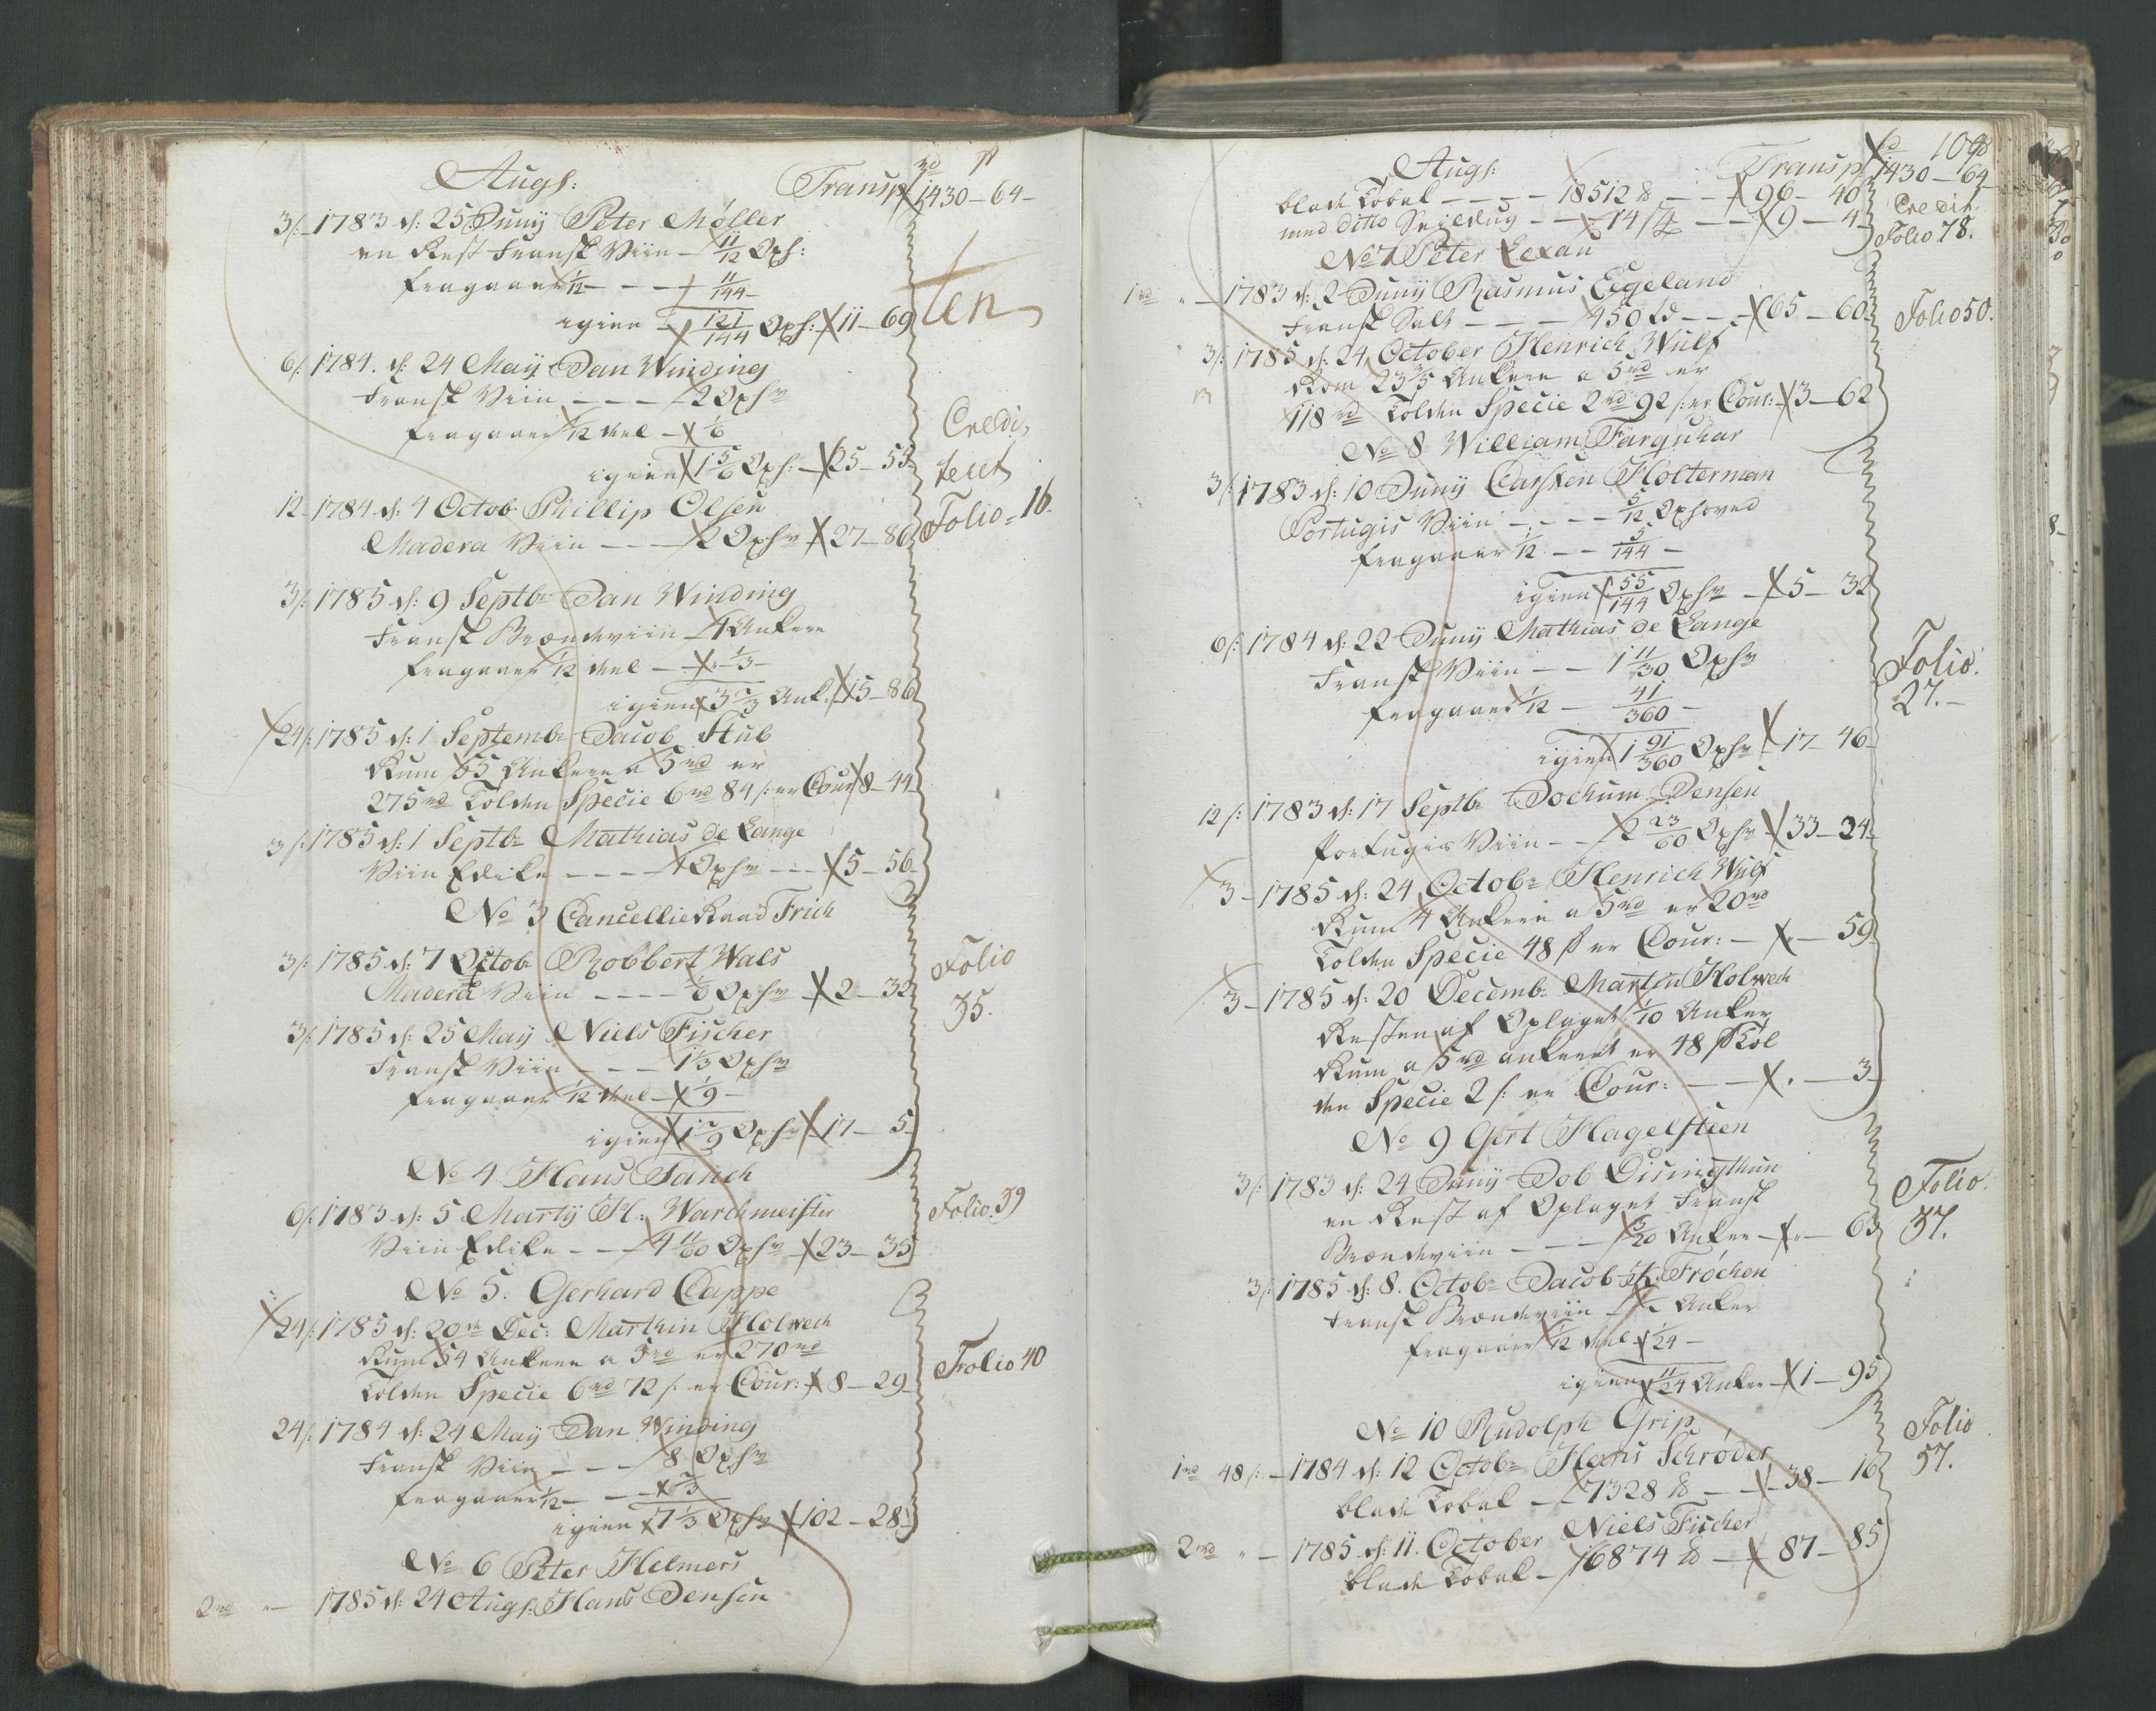 Augs:
Transp 1430 – 64 –
3/: 1783 d: 25 Junij Peter Møller
en Rest Fransk Viin – 11/12 Oxh:
fragaaer 1/12 – – – 11/144 –
igien – 121/144 Oxh: 11 – 69
ten
6/: 1784. d: 24 Maij Dan Winding
Fransk Viin – – – – 2 Oxhv
fragaaer 1/12 deel – 1/6
Credi,
igien 1 5/6 Oxh: – 25 – 55
teret
12 – 1784 d: 4 Octob: Phillip Olsen
Folio = 16
Madera Viin – – – 2 Oxhv 27 – 86
3/: 1785 d: 9 Septbr Dan Winding
Fransk Brændeviin – 4 Ankere
fragaaer 1/12 deel – 1/3 –
igien 3 2/3 Ank: 15 – 86
24/: 1785 d: 1 Septembr Jacob Stub
Rum 55 Ankere a 5 rd er
275 rd Tolden Specie 6 rd 84 /: er Cour 8 – 44
3/: 1785 d: 1 Septbr Mathias de Lange
Viin Edike – – – – 1 Oxhv – – – 5 – 56
No 3 CancellieRaad Frich
3/: 1785 d: 7 Octob: Robbert Wals
Folio
Madera Viin – – – – 1/6 Oxhv 2 – 32
35.
3/: 1785 d: 25 Maij Niels Fischer
Fransk Viin – – – 1 1/3 Oxhv
fragaaer 1/12 deel – 1/9 –
igien 1 2/9 Oxhv 17 – 5
No 4 Hans Tanch
6/: 1783 d: 5 Martij H: Warchmeister
Folio 39
Viin Edike – – – 4 11/60 Oxhv 23 – 35
No 5. Gerhard Cappe
24/: 1785 d: 20de Dec: Marthin Holweck
Rum 54 Ankere a 5 rd er 270 rd
Folio 40
Tolden Specie 6 rd 72 /: er Cour: 8 – 29
24/: 1784 d: 24 Maij Dan Winding
Fransk Viin – – – 8 Oxhv
fragaaer 1/12 – – 2/3
igien 7 1/3 Oxhv 102 – 28
No 6 Peter Helmers
2 rd " – 1785 d: 24 Augs: Hans Jensen
109
Augs: Transp 1430 – 64
blade Tobak – – – – 18512 – – 96 – 40
Credit
med ditto – – 14 – – 9 – 4
Folio 78.
No 7 Peter Lexau
1 rd " – 1783 d: 2 Junij Rasmus Eigeland
Fransk Salt – – – 450 – – 65 – 60
Folio 50.
3/: 1785 d: 24 October Henrich Wulf
Rom 23 3/5 Ankere a 5 rd er
118 rd Tolden Specie 2 rd 92 /: er Cour: 3 – 62
No 8 William Farquhar
3/: 1783 d: 10 Junij Carsten Holterman
Portugis Viin – – – – 5/12 Oxhoved
fragaaer 1/12 – – 5/144 –
igien 55/144 Oxhv – 5 – 32
6/: 1784 d: 22 Junij Mathias de Lange
Folio
Fransk Viin – – 1 11/30 Oxhv
27. –
fragaaer 1/12 – 41/360 –
igien 1 91/360 Oxhv 17 – 46
12/: 1783 d: 17 Septbr Jochum Jensen
Portugis Viin – – 2 23/60 Oxhv 33 – 24
3 – 1785 d: 24 Octobr Henrich Wulf
Rum 4 Ankere a 5 rd er 20 rd
Tolden Specie 48 ß er Cour: – " – 59
3 – 1785 d: 20 Decembr Martin Holweck
Resten af Oplaget 1/10 Anker
Rum a 5 rd ankeret er 48 ß Tol
den Specie 2 /: er Cour: – – . – 3
No 9 Gert Hagelsteen
3/: 1783 d: 24 Junij Job
Folio
en Rest af Oplaget Fransk
37.
Brændeviin – – – – 3/20 Anker – " – 63
3/: 1785 d: 8. Octobr Jacob Frøchen
Fransk Brændeviin – 1/2 Anker
fragaaer 1/12 deel 1/24 –
igien 11/24 Anker 1 – 95
No 10 Rudolph Grip
Folio
1 rd 48 /: – 1784 d: 12 Octobr Hans Schrøder
57.
blade Tobak – – 7328 – – 38 – 16
2 rd " – 1785 d: 11. October Niels Fischer
blade Tobak – 16874 – 87 – 85